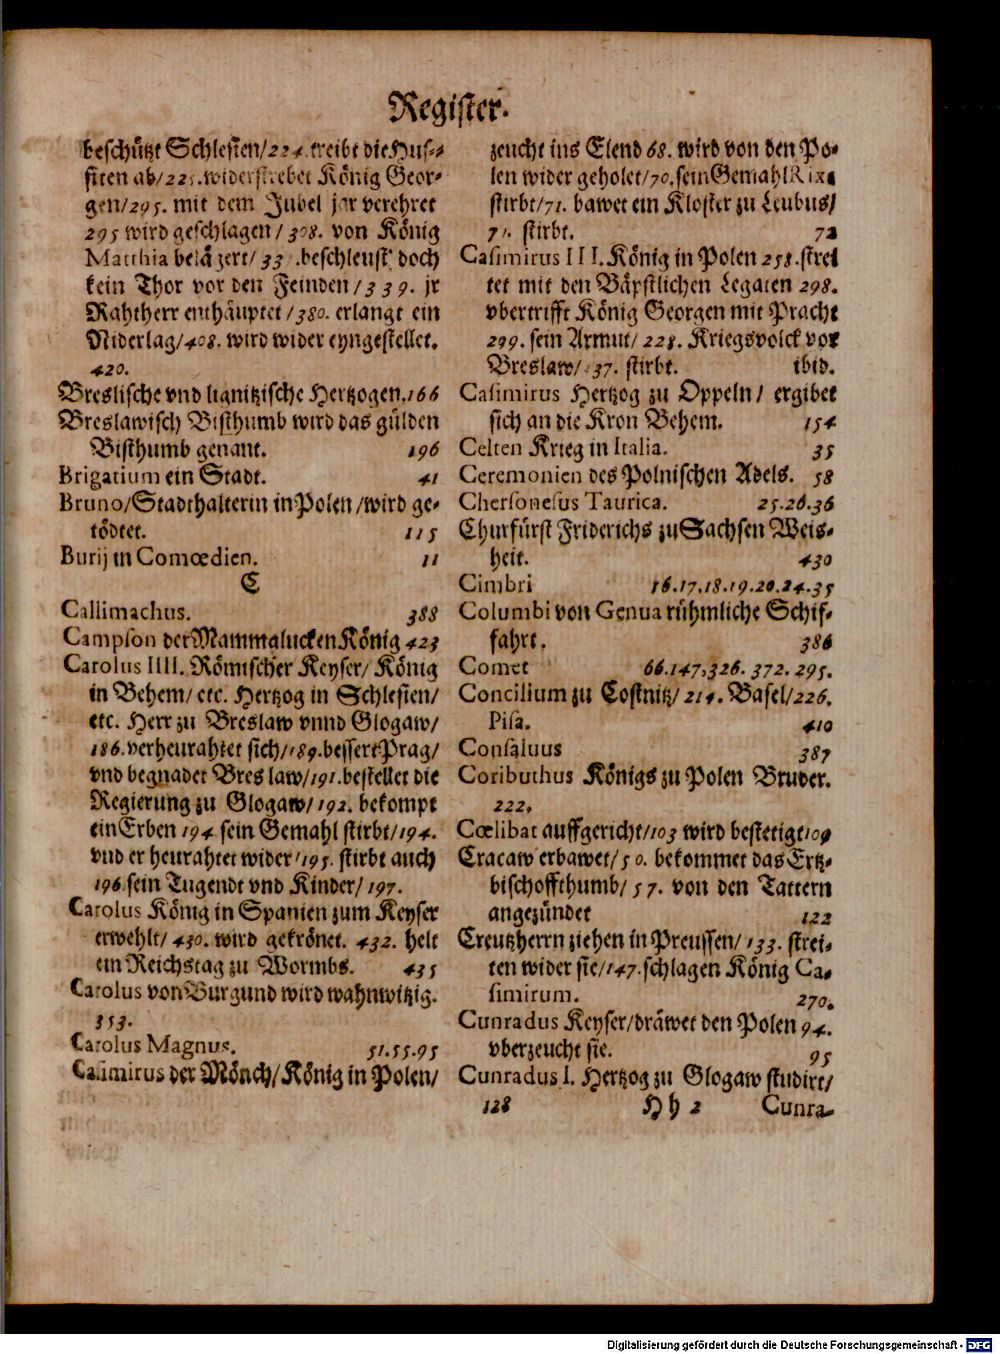 Register.
beschützt Schlesien/224. treibt die Hus-
siten ab/225. widerstrebet König Geor-
gen/295. mit dem Jubel jar verehret
295 wird geschlagen/308. von König
Matthia belägert/33 .beschleust doch
kein Thor vor den Feinden/339. jr
Rahtherr enthäuptet/380. erlangt ein
Niderlag/408. wird wider eyngestellet.
420.
Breslische vnd lignitzische Hertzogen.166
Breslawisch Bisthumb wird das gülden
Bisthumb genant. 196
Brigatium ein Stadt. 41
Bruno/Stadthalterin in Polen/wird ge-
tödtet. 115
Burij in Comœdien. 11
C
Callimachus. 388
Campson der Mammalucken König 423
Carolus IIII. Römischer Keyser/ König
in Behem/ etc. Hertzog in Schlesien/
etc. Herr zu Breslaw vnnd Glogaw/
186. verheurahtet sich/189. bessert Prag/
vnd begnadet Breslaw/191. bestellet die
Regierung zu Glogaw/192. bekompt
ein Erben 194 sein Gemahl stirbt/194.
vnd er heurahtet wider/195. stirbt auch
196. sein Tugendt vnd Kinder/197.
Carolus König in Spanien zum Keyser
erwehlt/430. wird gekrönet. 432. helt
ein Reichstag zu Wormbs. 435
Carolus von Burgund wird wahnwitzig.
353.
Carolus Magnus. 51.55.95
Casimirus der Mönch/König in Polen/
zeucht ins Elend 68. wird von den Po-
len wider geholet/70. sein Gemahl Rixa
stirbt/71. bawet ein Kloster zu Leubus/
71. stirbt. 72
Casimirus III. König in Polen 258. strei
tet mit den Bäpstlichen Legaten 298.
vbertrifft König Georgen mit Pracht
299. sein Armut/ 228. Kriegsvolck vor
Breslaw/ 37. stirbt. ibid.
Casimirus Hertzog zu Oppeln/ ergibet
sich an die Kron Behem. 154
Celten Krieg in Italia. 35
Ceremonien des Polnischen Adels. 58
Chersonesus Taurica. 25.26.36
Churfürst Friderichs zu Sachsen Weis-
heit. 430
Cimbri 16.17.18.19.20.24.35
Columbi von Genua rühmliche Schif-
fahrt. 386
Comet 66.147.326. 372. 295.
Concilium zu Costnitz/214. Basel/226.
Pisa. 410
Consaluus 387
Coributhus Königs zu Polen Bruder.
222.
Cœlibat auffgericht/103 wird bestetigt 109
Cracaw erbawet/50. bekommet das Ertz-
bischoffthumb/57. von den Tattern
angezündet 122
Creutzherrn ziehen in Preussen/133. strei-
ten wider sie/147. schlagen König Ca-
simirum. 270.
Cunradus Keyser/dräwet den Polen 94.
vberzeucht sie. 95
Cunradus I. Hertzog zu Glogaw studirt/
128 Hh 2 Cunra-
Digitalisierung gefördert durch die Deutsche Forschungsgemeinschaft - DFG